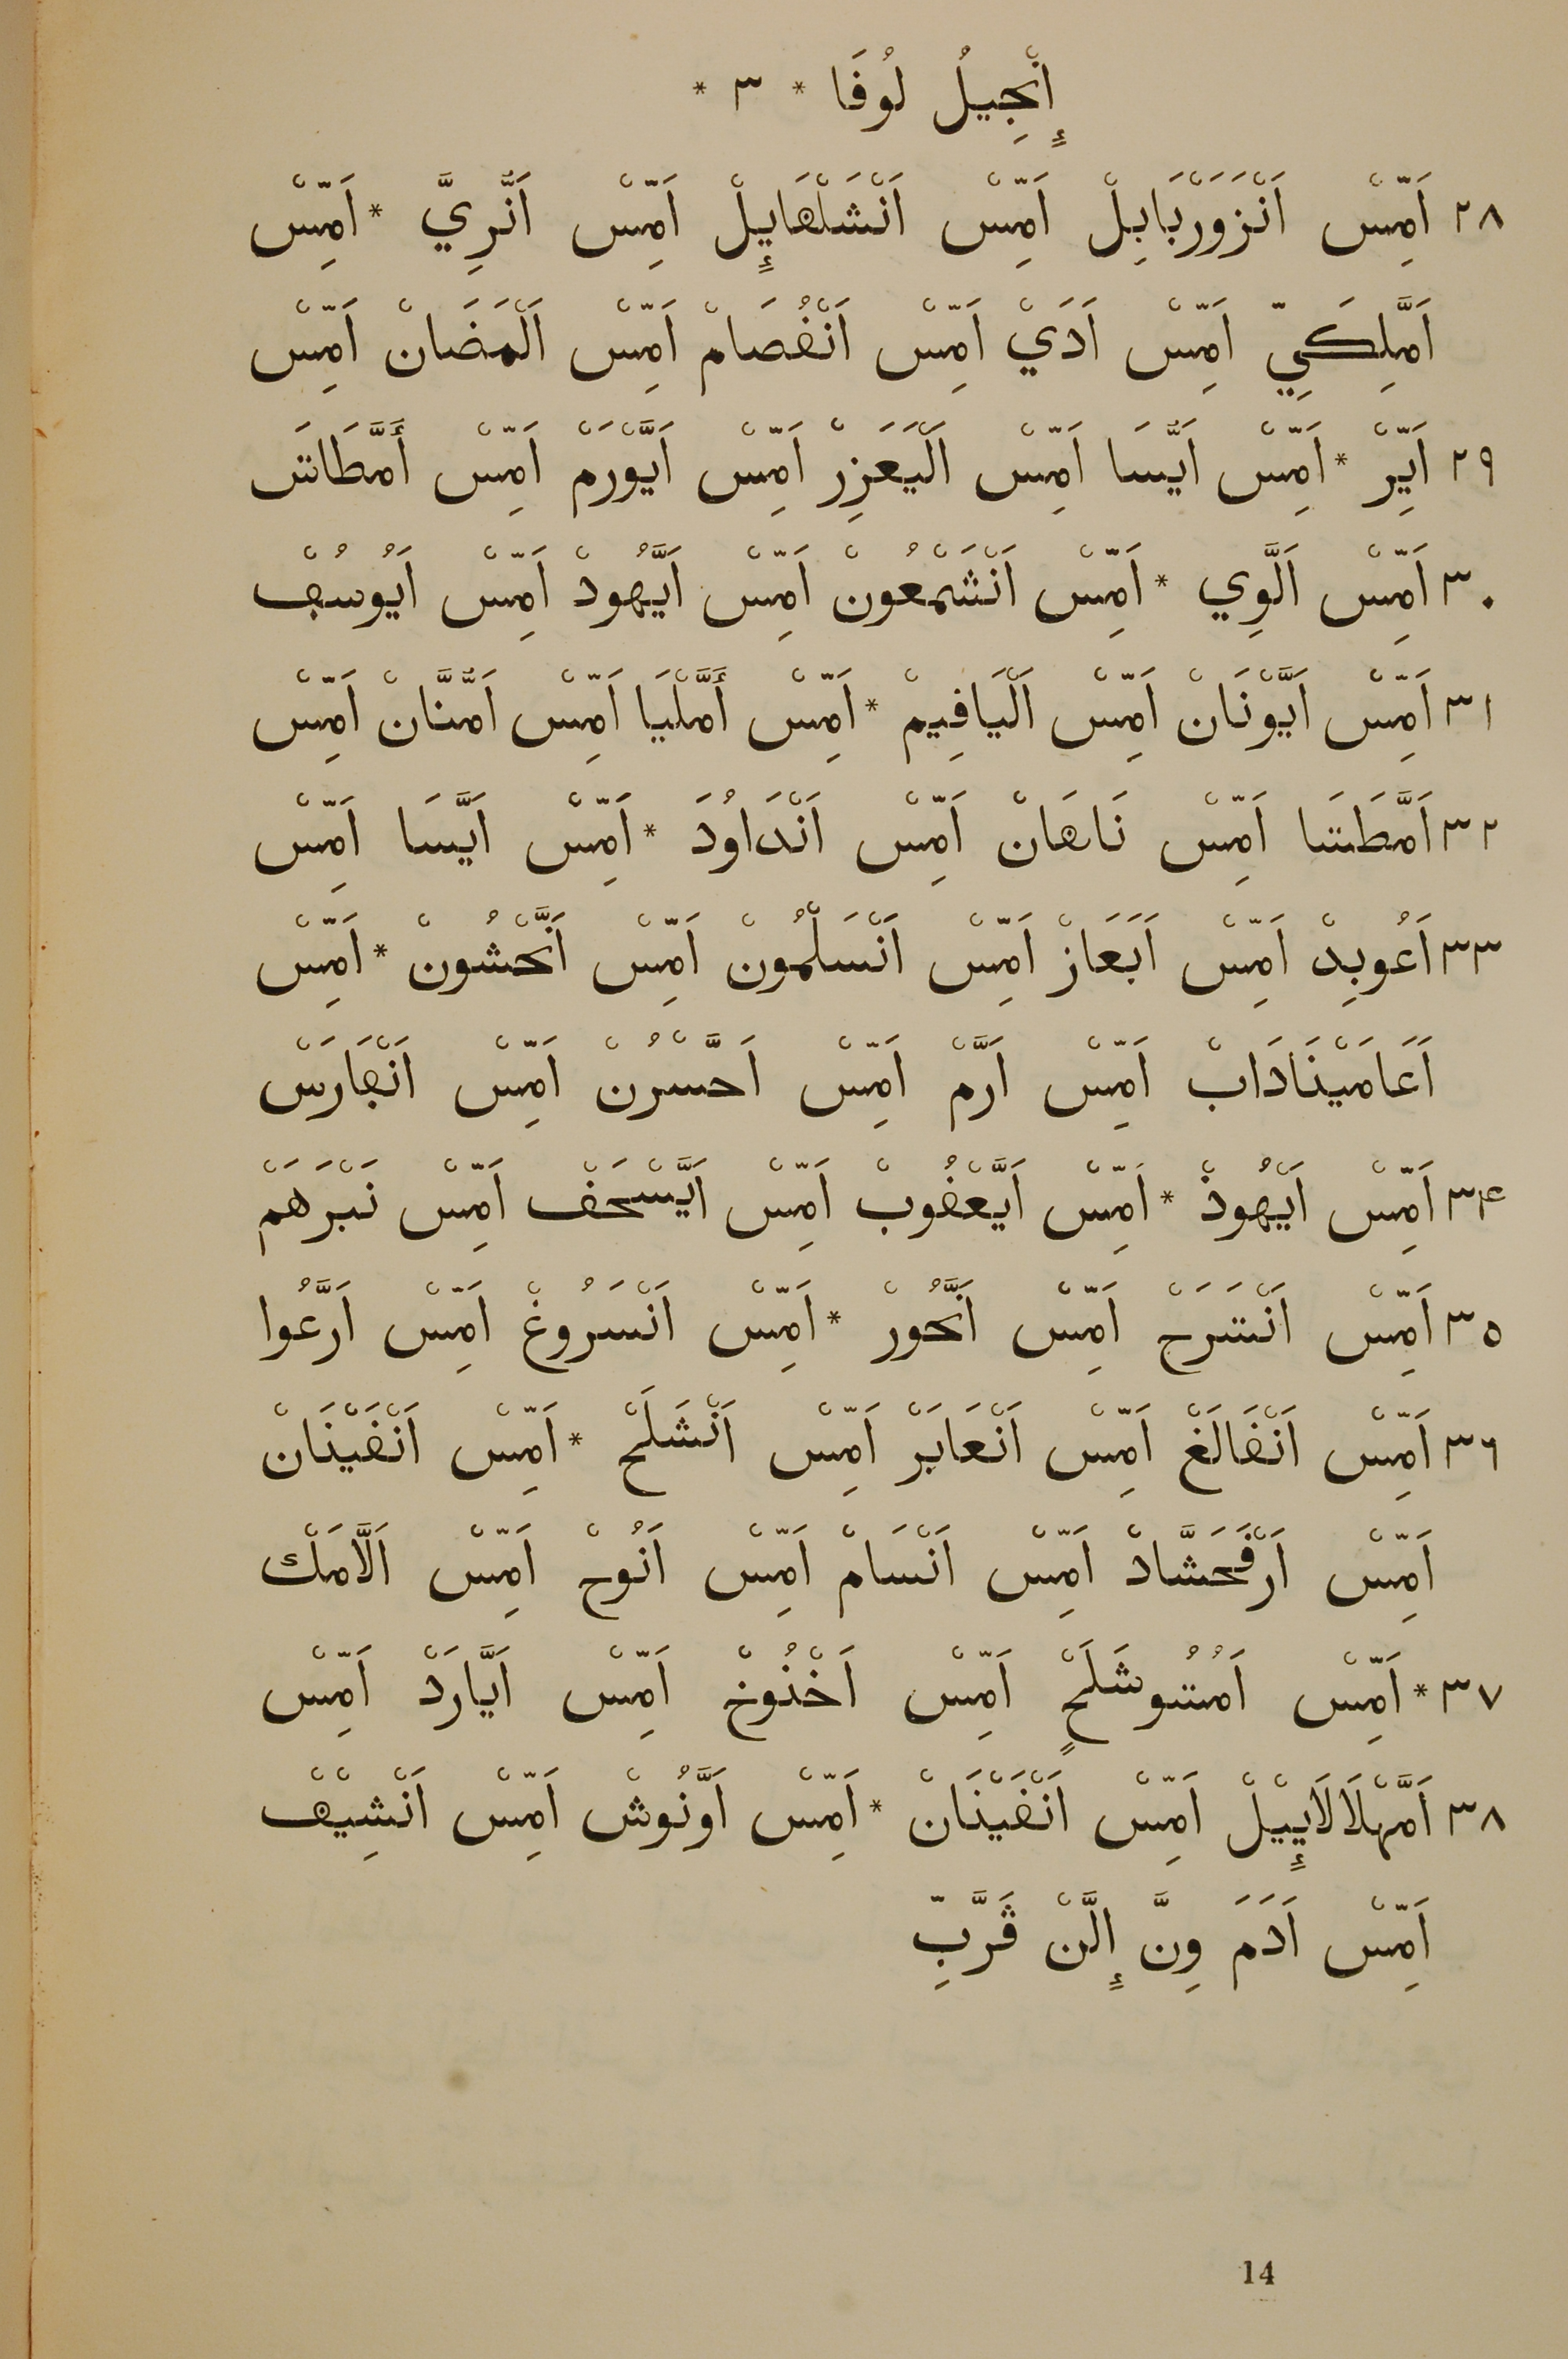 إِنْجِيلُ لُوفَا * ٣ *
٢٨ اَمِّسْ اَنْزَوَرْبَابِلْ اَمِّسْ اَنْشَلْهَايِٕلْ اَمِّسْ اَنَّرِيَّ * اَمِّسْ
اَمَّلِكَيِّ اَمِّسْ اَدَيْ اَمِّسْ اَنْفُصَامْ اَمِّسْ اَلْمَضَانْ اَمِّسْ
٢٩ اَيِّرْ * اَمِّسْ اَيَّسَا اَمِّسْ اَلْيَعَزِرْ اَمِّسْ اَيَّوْرَمْ اَمِّسْ أَمَّطَاتَ
٣٠ اَمِّسْ اَلَّوِي * اَمِّسْ اَنْشَمْعُونْ اَمِّسْ اَيَّهُودْ اَمِّسْ اَيُوسُفْ
٣١ اَمِّسْ اَيَّوْنَانْ اَمِّسْ اَلْيَافِيمْ * اَمِّسْ أَمَّلْيَا اَمِّسْ اَمَّنَّانْ اَمِّسْ
٣٢ اَمَّطَتَا اَمِّسْ نَاهَانْ اَمِّسْ اَنْدَاوُدَ * اَمِّسْ اَيَّسَا اَمِّسْ
٣٣ اَعُوبِدْ اَمِّسْ اَبَعَازْ اَمِّسْ اَنْسَلْمُونْ اَمِّسْ اَنَّحْشُونْ * اَمِّسْ
اَعَامَيْنَادَابْ اَمِّسْ اَرَّمْ اَمِّسْ اَحَّسْرُنْ اَمِّسْ اَنْفَارَسْ
٣٤ اَمِّسْ اَيْهُوذْ * اَمِّسْ اَيَّعْفُوبْ اَمِّسْ اَيَّسْحَفْ اَمِّسْ نَبْرَهَمْ
٣٥ اَمِّسْ اَنْتَرَحْ اَمِّسْ اَنَّحُورْ * اَمِّسْ اَنْسَرُوغْ اَمِّسْ اَرَّعُوا
٣٦ اَمِّسْ اَنْفَالَغْ اَمِّسْ اَنْعَابَرْ اَمِّسْ اَنْشَلَحْ * اَمِّسْ اَنْفَيْنَانْ
اَمِّسْ اَرْفَحَشَّادْ اَمِّسْ اَنْسَامْ اَمِّسْ اَنُوحْ اَمِّسْ اَلَّامَكْ
٣٧ * اَمِّسْ اَمُتُوشَلَحٍْ اَمِّسْ اَخْنُوخْ اَمِّسْ اَيَّارَدْ اَمِّسْ
٣٨ اَمَّهْلَالَايِٕيْلْ اَمِّسْ اَنْفَيْنَانْ * اَمِّسْ اَوَّنُوشْ اَمِّسْ اَنْشِيْفْ
اَمِّسْ اَدَمَ وِنَّ إِلَّنْ فَرَّبِّ
14